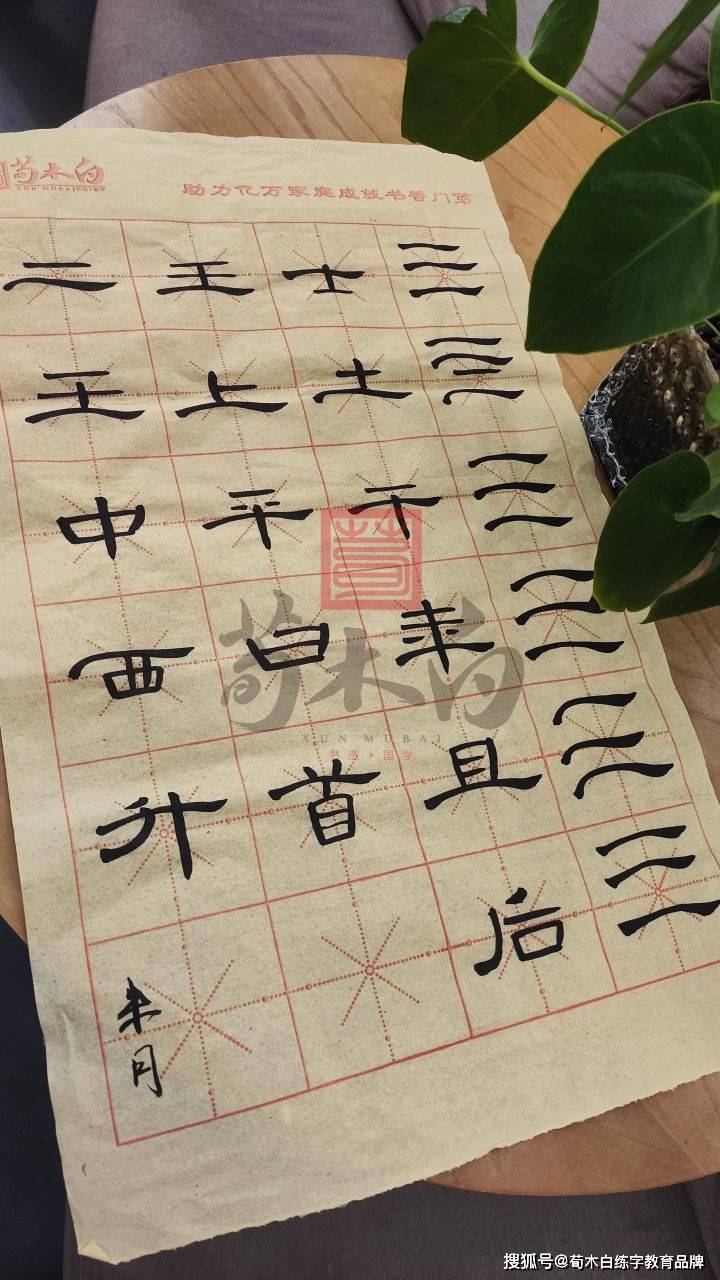 荀木白
XUN MUBAI
助力亿万家庭成就书香门第
三三三三三三
士土干且后
王上平白首
二王中西升
荀木白
XUN MUBAI
书法·国学
搜狐号@荀木白练字教育品牌